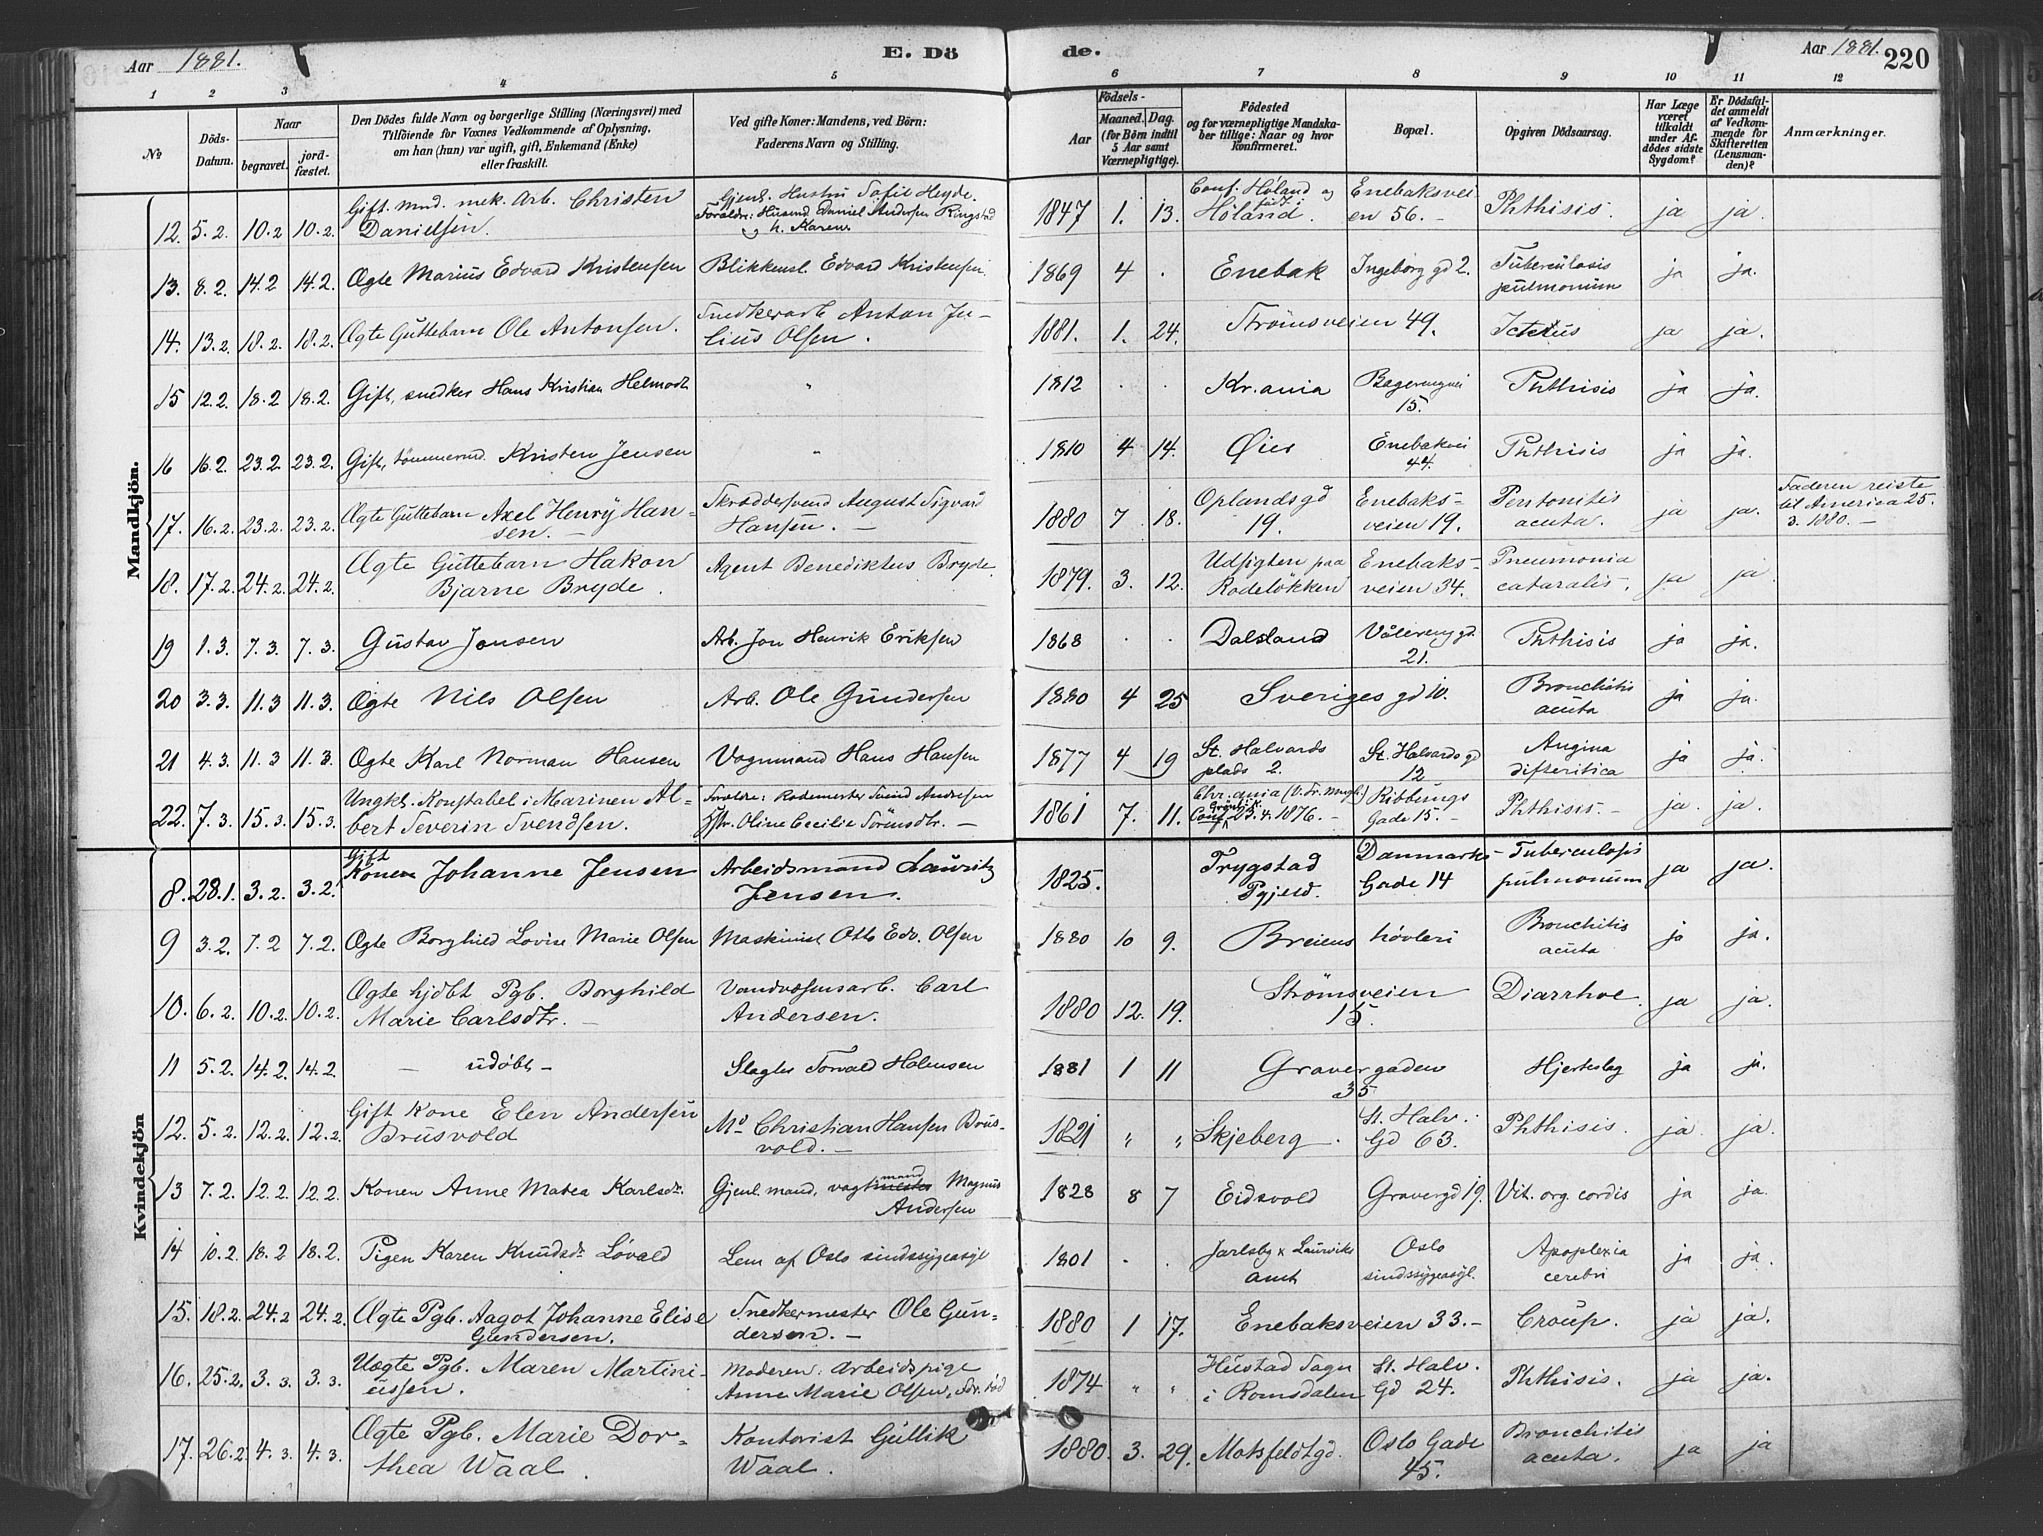 Aar 1881.
E. Dö
de.
Aar 1881.
220
1 2 3 4 5 6 7 8 9 10 11 12
No
Döds-Datum.
Naar
begravet.
jord-fæstet.
Den Dödes fulde Navn og borgerlige Stilling (Næringsvei) med
Tilföiende for Voxnes Vedkommende af Oplysning,
om han (hun) var ugift, gift, Enkemand (Enke)
eller fraskilt.
Ved gifte Koner: Mandens, ved Börn:
Faderens Navn og Stilling.
Födsels-
Aar
Maaned. Dag.
(for Börn indtil
5 Aar samt
Værnepligtige).
Födested
og for værnepligtige Mandska-
ber tillige: Naar og hvor
konfirmeret.
Bopæl.
Opgiven Dödsaarsag.
Har Læge
været
tilkaldt
under Af-
dödes sidste
Sygdom?
Er Dödsfal-
det anmeldt
af Vedkom-
mende for
Skifteretten
(Lensman-
den)?
Anmærkninger.
Mandkjön.
12. 5.2. 10.2 10.2. Gift. Mnd. mek. Arb. Christen
Danielsen.
Gjenl. Hustru Sofie Heyde.
Forældre: Husmd Daniel Andersen Ringstad
h. Karen
1847 1. 13. Conf. Høland og
født i
Høland. Enebaksvei-
en 56. - Phthisis. ja ja.
13. 8.2. 14.2 14.2. Ægte Marius Edvard Kristensen Blikkensl. Edvard Kristensen. 1869 4 . Enebak Ingeborg gd 2. Tuberculosis
pulmonum ja ja.
14. 13.2. 18.2. 18.2. Ægte Guttebarn Ole Antonsen. Snedkerarb Anton Ju-
lius Olsen. 1881. 1. 24. Strømsveien 49. Icterus ja ja.
15 12.2 18.2 18.2. Gift, snedker Hans Kristian Helmodt " 1812 . . Kr.ania
15. Phthisis ja ja.
16 16.2 23.2. 23.2. Gift, tømmermd. Kristen Jensen " 1810 4 14. Øier Enebakvei
44. Phthisis ja ja.
17. 16.2. 23.2. 23.2. Ægte Guttebarn Axel Henry Han-
sen. - Skræddersvend August Sigvard
Hansen. - 1880 7 18. Oplandsgd
19. Enebaks-
veien 19. Peritonitis
acuta. ja ja. Faderen reiste
til America 25.
3. 1880. -
18. 17.2. 24.2. 24.2. Ægte Guttebarn Hakon
Bjarne Bryde. Agent Benediktus Bryde. 1879. 3. 12. Udsigten paa
Rodeløkken Enebaks-
veien 34. Pneumonia
cataralis. ja ja
19 1.3. 7.3. 7.3. Gustav Jonsen Arb. Jon Henrik Eriksen 1868 . . Dalsland Vålereng gd.
21. Phthisis ja ja.
20 3.3. 11.3 11.3. Ægte Nils Olsen Arb. Ole Gundersen 1880 4 25 Sveriges gd 10. Bronchitis
acuta ja ja.
21 4.3. 11.3 11.3. Ægte Karl Norman Hansen Vognmand Hans Hansen 1877 4 19 St. Halvards
plads 2. St. Halvards gd
12 Angina
difteritica ja ja.
22. 7.3. 15.3. 15.3. Ungkl. Konstabel i Marinen Al-
bert Severin Svendsen. Forældre: Rodemester Svend Andresen
Hstr. Oline Cecilie Sörensdtr. - 1861 7. 11. Chr.ania
Conf. 23.4.1876. - Ribbungs
Gade 15. - Phthisis. - ja. ja.
Kvindekjön
8. 28.1. 3.2. 3.2. Gift
Konen Johanne Jensen Arbeidsmand Lauritz
Jensen. 1825. Trygstad
Pgjeld. Danmarks-
Gade 14 Tuberculosis
pulmonum ja ja.
9 3.2. 7.2 7.2. Ægte Borghild Lovise Marie Olsen Maskinist Otto Edv. Olsen 1880 10 9. Breiens høvleri Bronchitis
acuta ja ja.
10. 6.2. 10.2. 10.2. Ægte hjdbt Pgb. Borghild
Marie Carlsdtr. - Vandvæsensarb. Carl
Andersen. 1880 12. 19. Strømsveien
15. Diarrhoe. ja ja.
11 5.2. 14.2. 14.2 - udøbt - Slagter Torvald Halensen 1881 1 11 Gravergaden
35 Hjerteslag ja ja.
12. 5.2. 12.2. 12.2. Gift Kone Elen Andersen
Brusvold Md Christian Hansen Brus-
vold. - 1821 " " Skjeberg. St. Halv.
Gd 63. Phthisis. ja. ja.
13 7.2. 12.2. 12.2. Konen Anne Matea Karlsdr. Gjenl. mand, vagtmester mand Magnus
Andersen 1828 8 7 Eidsvold Gravergd 19. Vit. org. cordis ja ja.
14 10.2. 18.2 18.2. Pigen Karen Knudsdr Løvald Lem af Oslo sindssygeasyl 1801 . . Jarlsbg & Laurviks
amt Oslo
sindssygeasyl. Apoplexia
cerebri ja ja.
15. 18.2. 24.2 24.2. Ægte Pgb. Aagot Johanne Elise
Gundersen. Snedkermester Ole Gun-
dersen. - 1880 1 17. Enebaksveien 33. - Croup. ja ja.
16. 25.2. 3.3. 3.3. Uægte Pgb. Maren Martini-
ussen. Moderen: Arbeidspige
Anne Marie Olsen, 1874 " " Hustad Sogn
i Romsdalen St. Halv.
Gd 24. Phthisis. ja ja.
17. 26.2 4.3. 4.3. Ægte Pgb. Marie Dor-
thea Waal. Kontorist Gullik
Waal. 1880. 3. 29. Motsfeldtgd. Oslo Gade
45. Bronchitis
acuta. ja ja